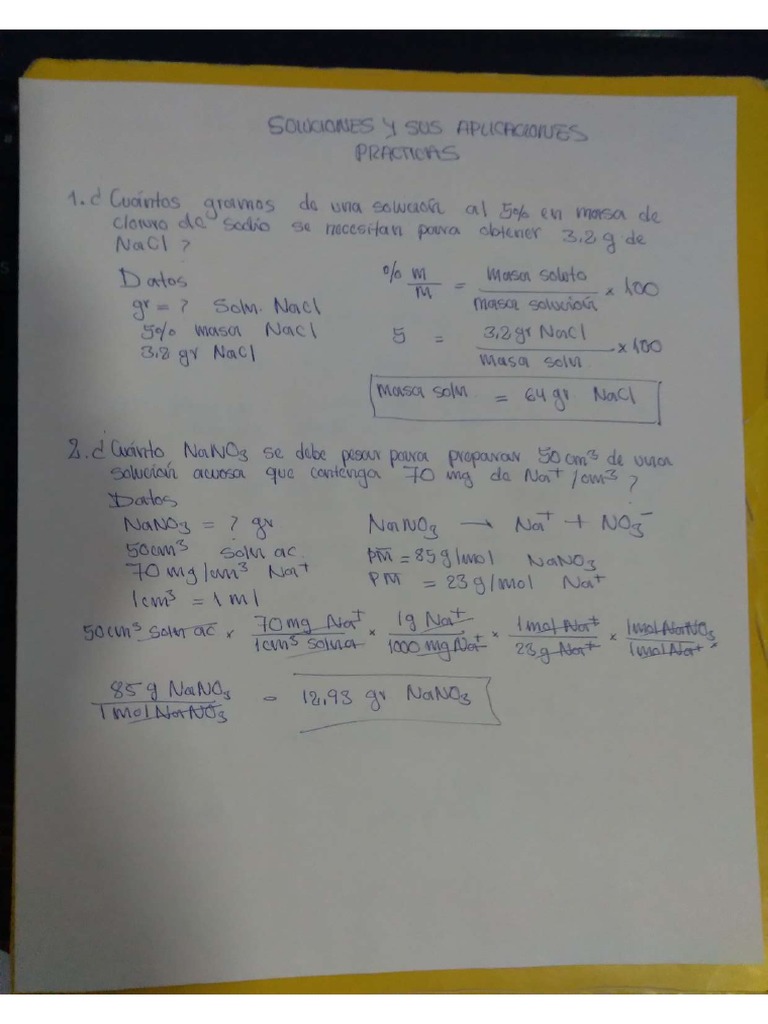 SOLUCIONES Y SUS APLICACIONES
PRACTICAS
1. ¿Cuántos gramos de una solución al 5% en masa de
cloruro de sodio se necesitan para obtener 3.2 g de
NaCl ?
Datos
gr = ? Soln. NaCl
5% masa NaCl
3.2 gr NaCl
% m/M = masa soluto / masa solución × 100
5 = 3.2 gr NaCl / masa soln × 100
masa soln = 64 gr NaCl
2. ¿Cuánto NaNO3 se debe pesar para preparar 50 cm³ de una
solución acuosa que contenga 70 mg de Na+ /cm³ ?
Datos
NaNO3 = ? gr
50cm³ soln ac.
70 mg/cm³ Na+
1cm³ = 1 ml
NaNO3 → Na+ + NO3-
PM = 85 g/mol NaNO3
PM = 23 g/mol Na+
50cm³ soln ac × 70 mg Na+ / 1cm³ × 1g Na+ / 1000 mg Na+ × 1mol Na+ / 23 g Na+ × 1mol NaNO3 / 1mol Na+ ×
85 g NaNO3 / 1 mol NaNO3 = 12,93 gr NaNO3